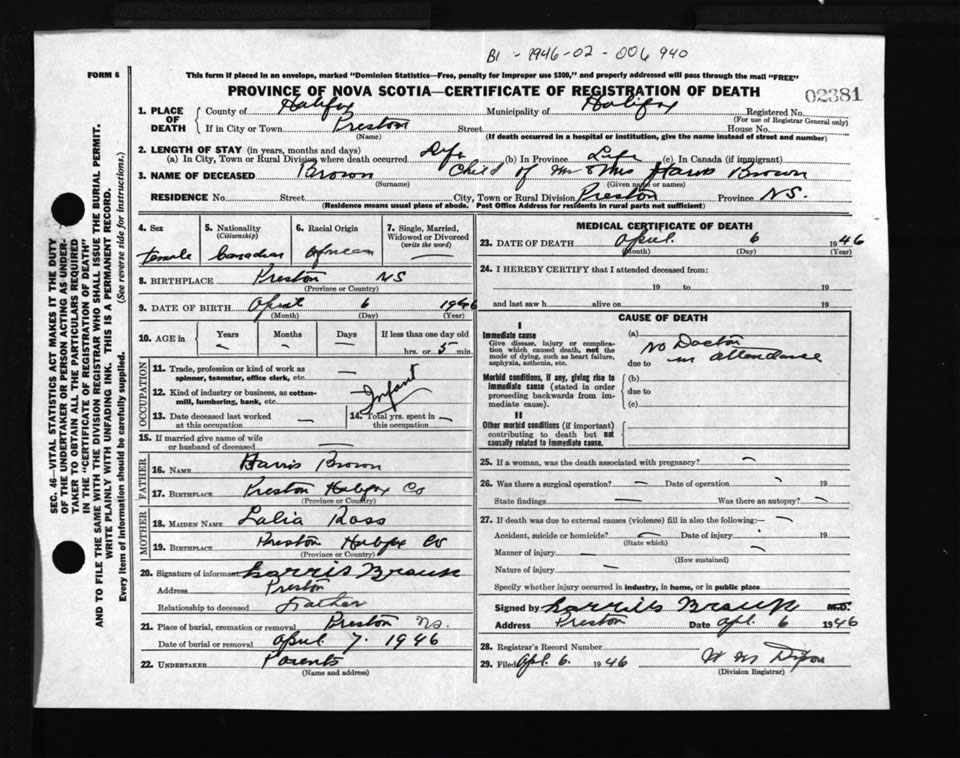 B1 - 1946-02-006940
FORM 6
This form if placed in an envelope, marked "Dominion Statistics—Free, penalty for improper use $300," and properly addressed will pass through the mail "FREE"
PROVINCE OF NOVA SCOTIA—CERTIFICATE OF REGISTRATION OF DEATH
02381
1. PLACE OF DEATH { County of Halifax Municipality of Halifax Registered No.
(For use of Registrar General only)
If in City or Town Preston Street House No.
(Name) (If death occurred in a hospital or institution, give the name instead of street and number)
2. LENGTH OF STAY (in years, months and days)
(a) In City, Town or Rural Division where death occurred Life (b) In Province Life (c) In Canada (if immigrant)
3. NAME OF DECEASED Brown Child of Mr & Mrs Harris Brown
(Surname) (Given name or names)
RESIDENCE No. Street City, Town or Rural Division Preston Province NS.
(Residence means usual place of abode. Post Office Address for residents in rural parts not sufficient)
4. Sex
female
5. Nationality
(Citizenship)
Canadian
6. Racial Origin
African
7. Single, Married,
Widowed or Divorced
(write the word)
—
8. BIRTHPLACE Preston NS
(Province or Country)
9. DATE OF BIRTH April 6 1946
(Month) (Day) (Year)
10. AGE in { Years Months Days If less than one day old
– – – hrs. or 5 min.
OCCUPATION
11. Trade, profession or kind of work as
spinner, teamster, office clerk, etc. —
12. Kind of industry or business, as cotton-
mill, lumbering, bank, etc. Infant
13. Date deceased last worked
at this occupation —
14. Total yrs. spent in
this occupation —
15. If married give name of wife
or husband of deceased —
FATHER
16. NAME Harris Brown
17. BIRTHPLACE Preston Halifax Co
(Province or Country)
MOTHER
18. MAIDEN NAME Lalia Ross
19. BIRTHPLACE Preston Halifax Co
(Province or Country)
20. Signature of informant
Address Preston
Relationship to deceased Father
21. Place of burial, cremation or removal Preston NS.
Date of burial or removal April 7, 1946
22. UNDERTAKER Parents
(Name and address)
MEDICAL CERTIFICATE OF DEATH
23. DATE OF DEATH April 6 1946
(Month) (Day) (Year)
24. I HEREBY CERTIFY that I attended deceased from:
19 to 19
and last saw h alive on 19
CAUSE OF DEATH
I
Immediate cause
Give disease, injury or complica-
tion which caused death, not the
mode of dying, such as heart failure,
asphyxia, asthenia, etc.
(a) No Doctor
in attendance
due to
Morbid conditions, if any, giving rise to
immediate cause (stated in order
proceeding backwards from im-
mediate cause).
(b)
due to
(c)
II
Other morbid conditions (if important)
contributing to death but not
causally related to immediate cause.
25. If a woman, was the death associated with pregnancy? –
26. Was there a surgical operation? – Date of operation – 19
State findings — Was there an autopsy? –
27. If death was due to external causes (violence) fill in also the following:—
Accident, suicide or homicide? — Date of injury – 19
(State which)
Manner of injury —
(How sustained)
Nature of injury —
Specify whether injury occurred in industry, in home, or in public place
Signed by M.D.
Address Preston Date Apl. 6 1946
28. Registrar's Record Number
29. Filed Apl. 6. 1946 W M Dixon
(Division Registrar)
SEC. 46—VITAL STATISTICS ACT MAKES IT THE DUTY
OF THE UNDERTAKER OR PERSON ACTING AS UNDER-
TAKER TO OBTAIN ALL THE PARTICULARS REQUIRED
IN THE "CERTIFICATE OF REGISTRATION OF DEATH"
AND TO FILE THE SAME WITH THE DIVISION REGISTRAR WHO SHALL ISSUE THE BURIAL PERMIT.
WRITE PLAINLY WITH UNFADING INK. THIS IS A PERMANENT RECORD.
Every item of information should be carefully supplied. (See reverse side for instructions.)